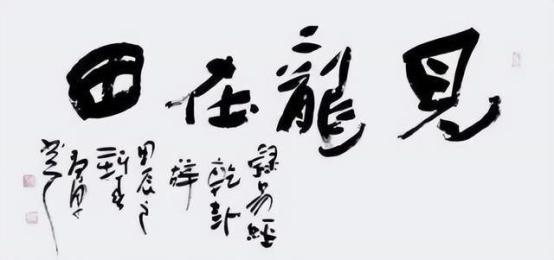 見龍在田
錄易經
乾卦
辭
甲辰之
新春